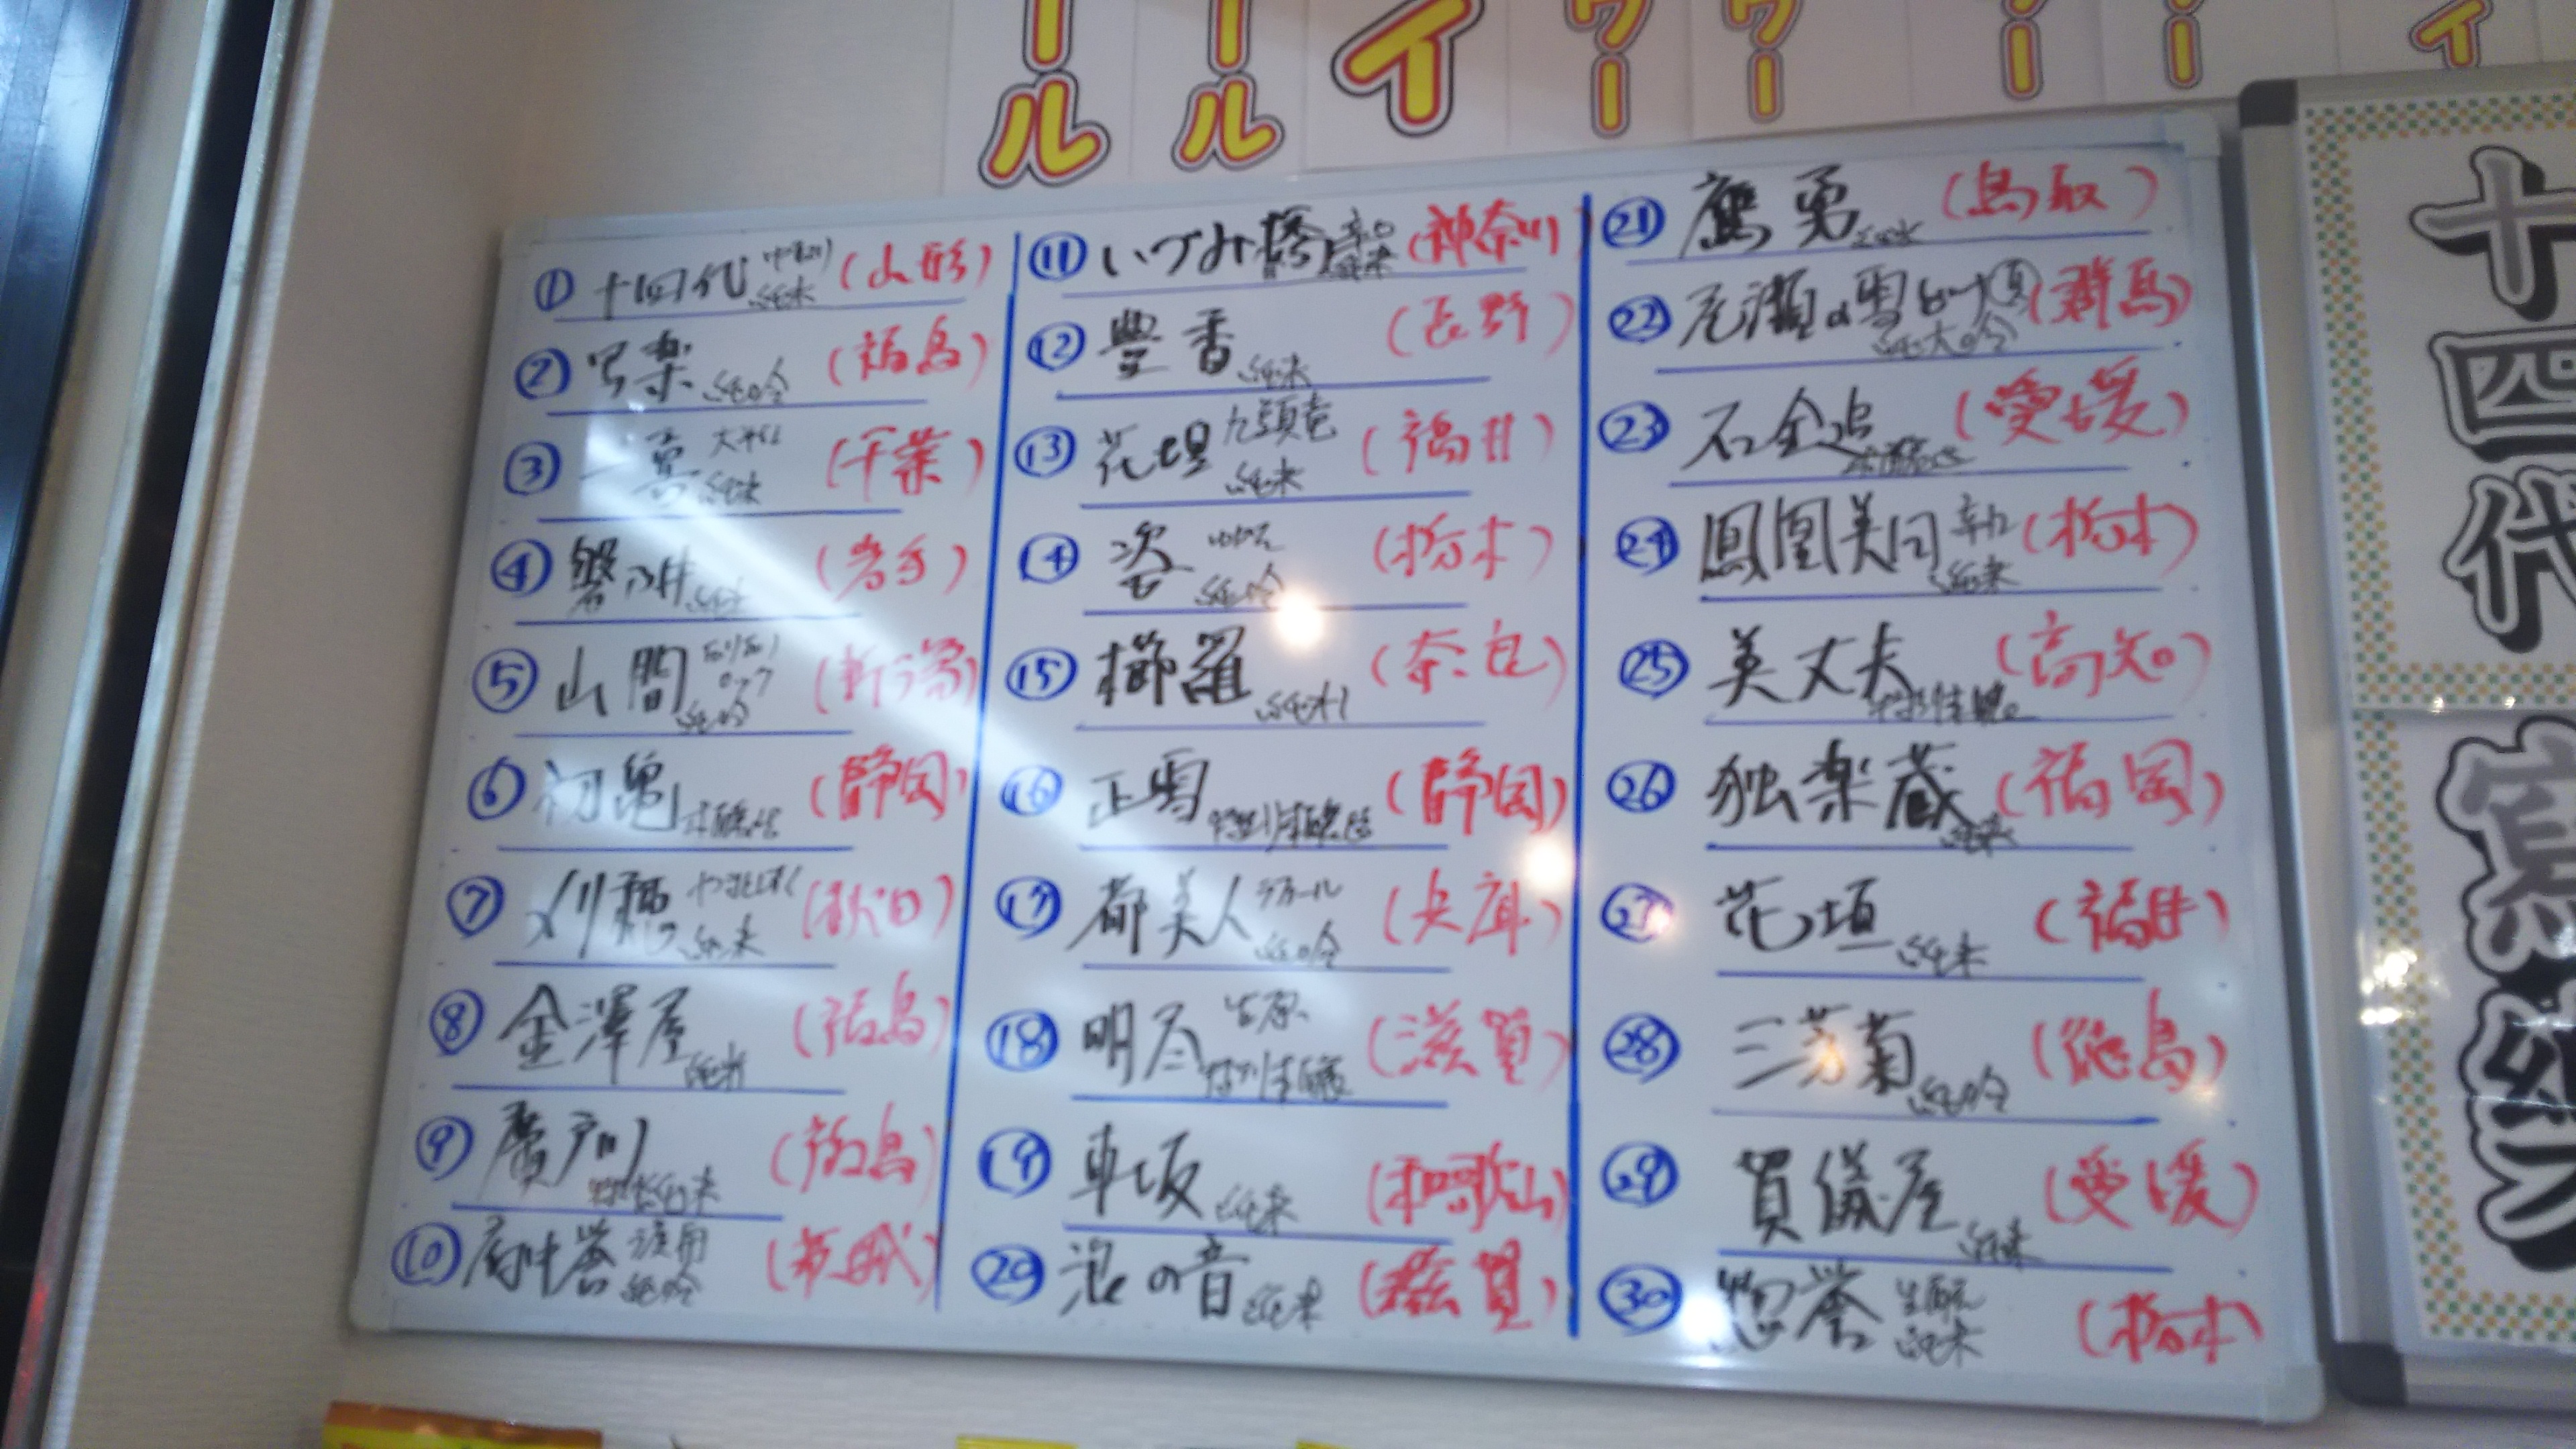 ール
ール
イ
ワー
ワー
ー
ー
イ
① 十四代 中取り 純米 (山形)
② 写楽 純吟 (福島)
③ 一喜 純米 (千葉)
④ 磐乃井 純米 (岩手)
⑤ 山間 純吟 (新潟)
⑥ 初亀 本醸造 (静岡)
⑦ 刈穂 純米 (秋田)
⑧ 金澤屋 純米 (福島)
⑨ 廣戸川 特別純米 (福島)
⑩ 府中誉 渡舟 純吟 (茨城)
⑪ いづみ橋 辛口 純米 (神奈川)
⑫ 豊香 純米 (長野)
⑬ 花垣 九頭竜 純米 (福井)
⑭ 姿 純吟 (栃木)
⑮ 櫛羅 純米 (奈良)
⑯ 正雪 特別本醸造 (静岡)
⑰ 都美人 純吟 (兵庫)
⑱ 明尽 生原 特別本醸 (滋賀)
⑲ 車坂 純米 (和歌山)
⑳ 浪の音 純米 (滋賀)
㉑ 鷹勇 純米 (鳥取)
㉒ 尾瀬の雪どけ 純大吟 (群馬)
㉓ 石鎚 (愛媛)
㉔ 鳳凰美田 辛口 純米 (栃木)
㉕ 美丈夫 (高知)
㉖ 独楽蔵 純米 (福岡)
㉗ 花垣 純米 (福井)
㉘ 三芳菊 純吟 (徳島)
㉙ 賀儀屋 純米 (愛媛)
㉚ 惣誉 生酛 純米 (栃木)
十四代
寫楽